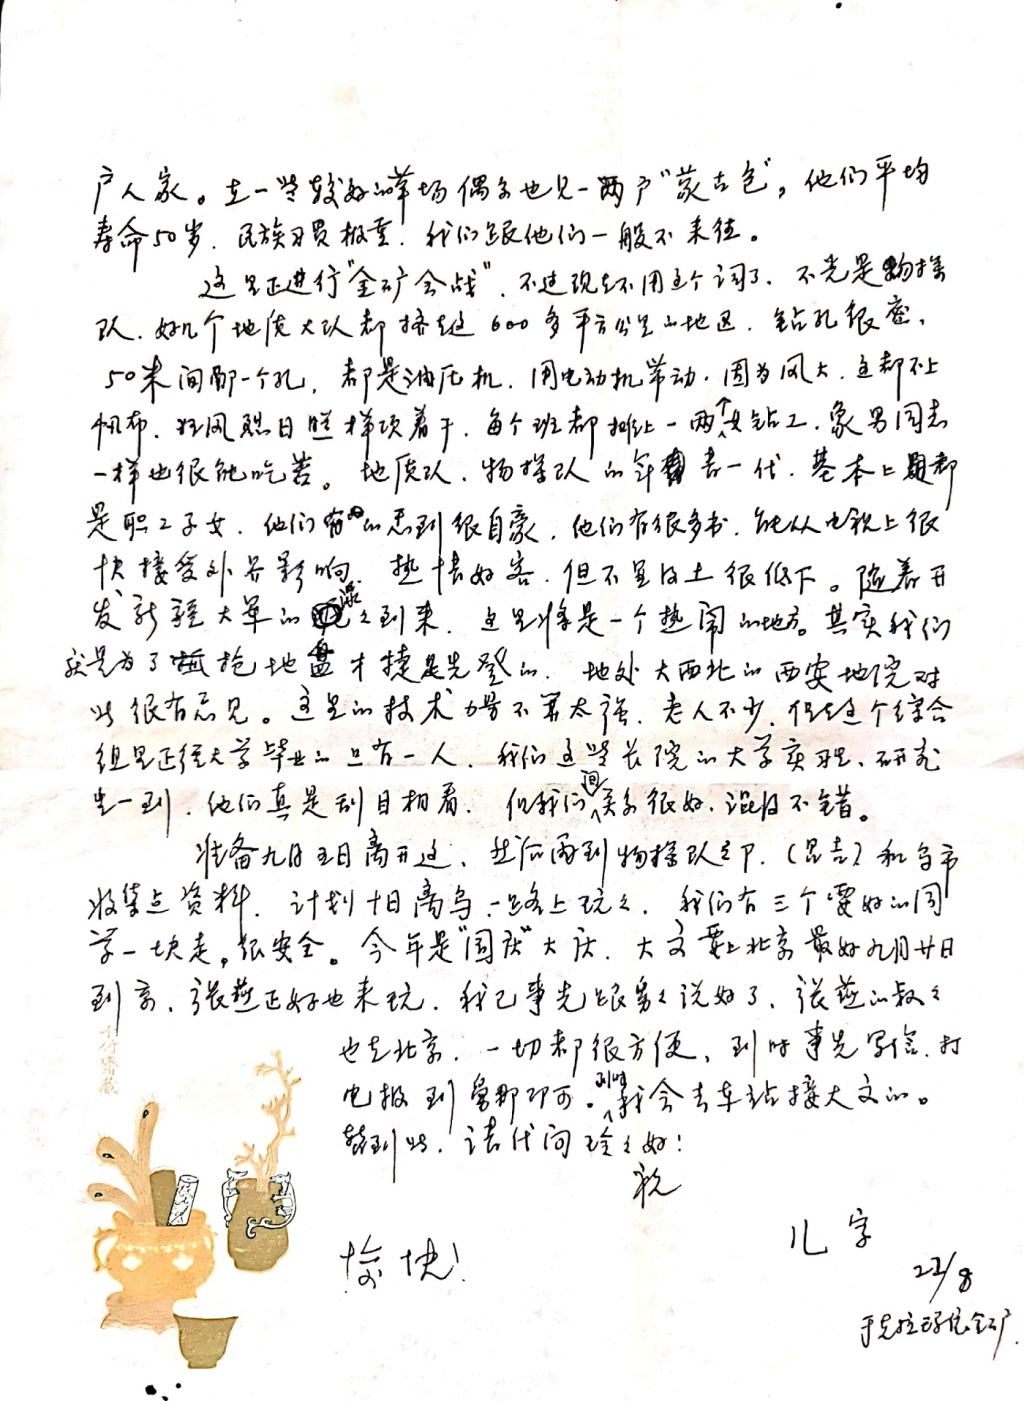 户人家。在一些较好的草场偶尔也见一两户"蒙古包"，他们平均
寿命50岁．民族习惯极重．我们跟他们一般不来往。
这里正进行"金矿会战"．不过现在不用这个词了．不光是物探
队．好几个地质大队都挤在这600多平方公里的地区．钻孔很密，
50米间距一个孔．都是油压机．用电动机带动．因为风大．连都不上
帆布．狂风烈日照样顶着干．每个班都排上一两个女钻工．象男同志
一样也很能吃苦。地质队．物探队的年青一代．基本上都
是职工子女．他们有的感到很自豪．他们有很多书．能从电视上很
快接受外界影响．热情好客．但不是很低下。随着开
发新疆大军的滚滚到来．这里将是一个热闹的地方。其实我们
就是为了抢地盘才捷足先登的．地处大西北的西安地院对
此很有意见。这里的技术力量不算太强．老人不少．但在这个综合
组里正经大学毕业的只有一人．我们这些长院的大学实习生、研究
生一到．他们真是刮目相看．但我们间关系很好．混得不错。
准备九月五日离开这．然后再到物探队部．（昌吉）和乌市
收集点资料．计划十日离乌．一路上玩玩．我们有三个要好的同
学一块走。很安全。今年是"国庆"大庆．大文要上北京最好九月廿日
到京．张燕正好也来玩．我已事先跟舅舅说好了．张燕的叔叔
也在北京．一切都很方便．到时事先写信．打
电报到舅那即可。到时我会去车站接大文的。
就到此．请代问玲玲好！
祝
愉快！
儿 字
22/8
于克拉金矿.
十竹斋藏